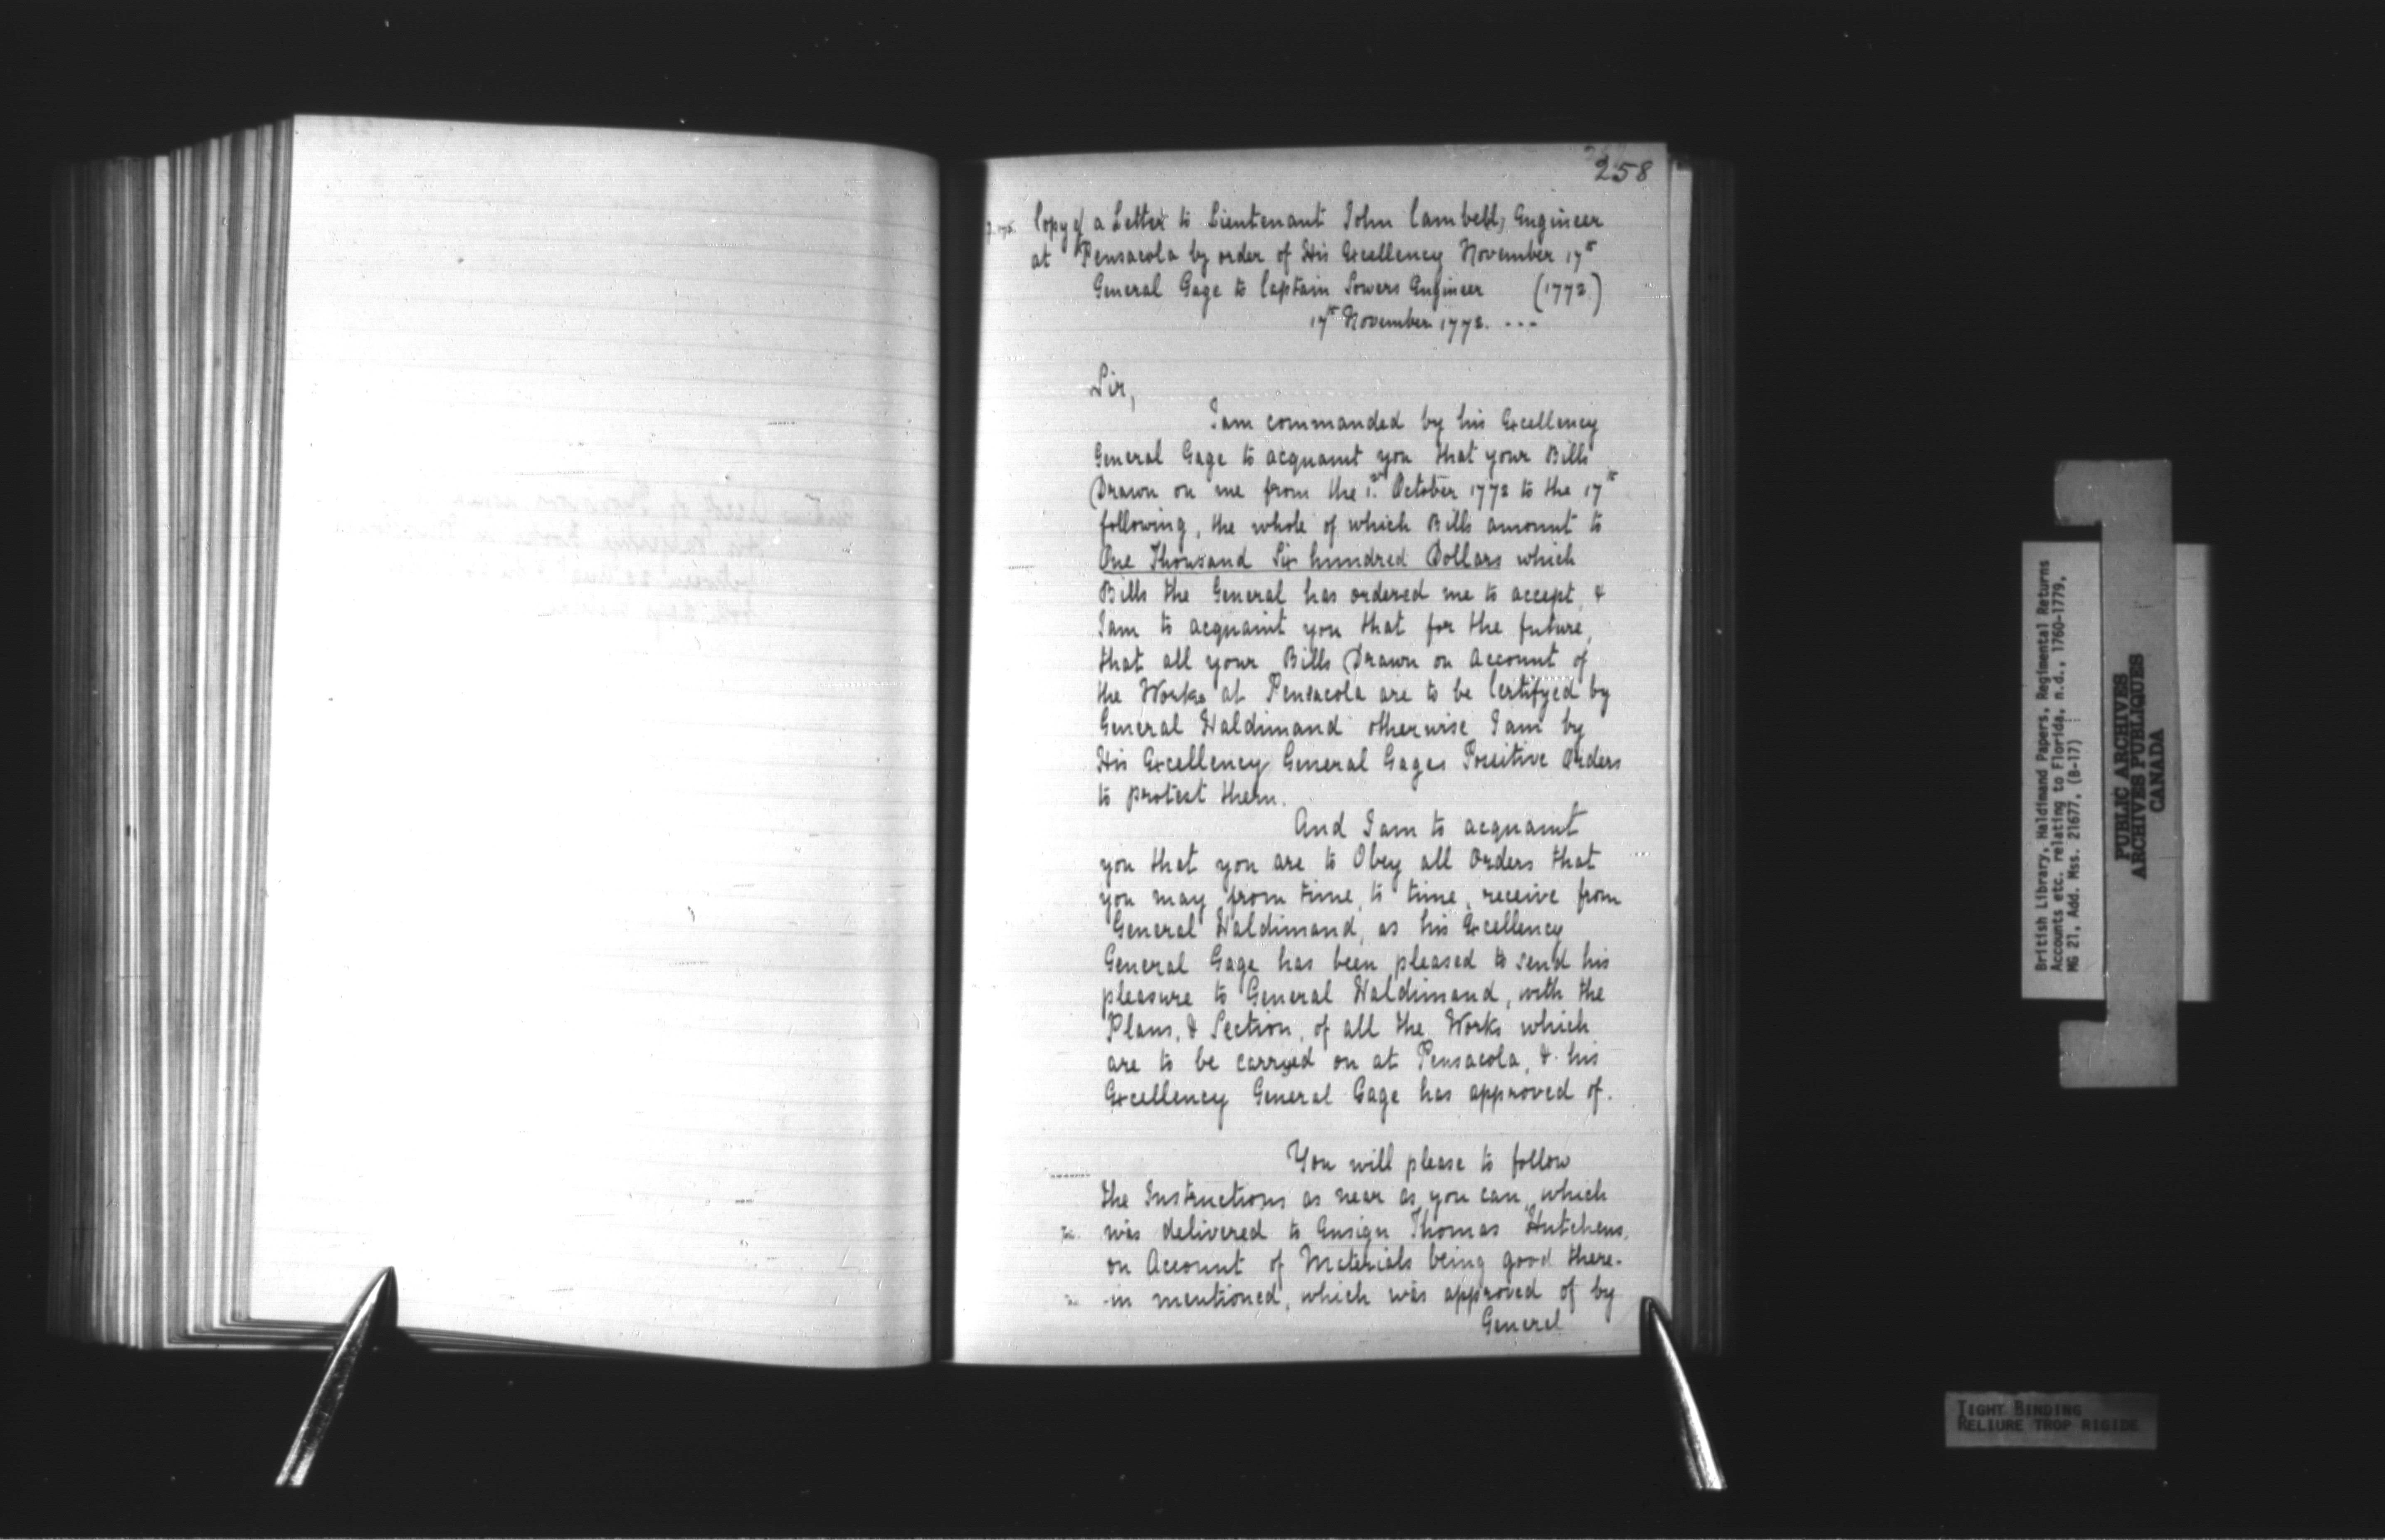 258
Copy of a Letter to Lieutenant John Cambell, Engineer
at Pensacola by order of His Excellency November 17th
General Gage to Captain Sowers Engineer (1772)
17th November 1772. ...
Sir,
I am commanded by his Excellency
General Gage to acquaint you that your Bills
Drawn on me from the 1st October 1772 to the 17th
following, the whole of which Bills amount to
One Thousand Six hundred Dollars which
Bills the General has ordered me to accept, &
I am to acquaint you that for the future,
that all your Bills Drawn on Account of
the Works at Pensacola are to be Certifyed by
General Haldimand otherwise I am by
His Excellency General Gages Possitive Orders
to protest them.
And I am to acquaint
you that you are to Obey all Orders that
you may from time to time, receive from
General Haldimand, as his Excellency
General Gage has been pleased to send his
pleasure to General Haldimand, with the
Plans, & Section, of all the Works which
are to be carryed on at Pensacola, & his
Excellency General Gage has approved of.
You will please to follow
the Instructions as near as you can, which
was delivered to Ensign Thomas Hutchens,
on Account of Materials being good there-
-in mentioned, which was approved of by
General
British Library, Haldimand Papers, Regimental Returns
Accounts etc. relating to Florida, n.d., 1760-1779,
MG 21, Add. Mss. 21677, (B-17)
PUBLIC ARCHIVES
ARCHIVES PUBLIQUES
CANADA
TIGHT BINDING
RELIURE TROP RIGIDE